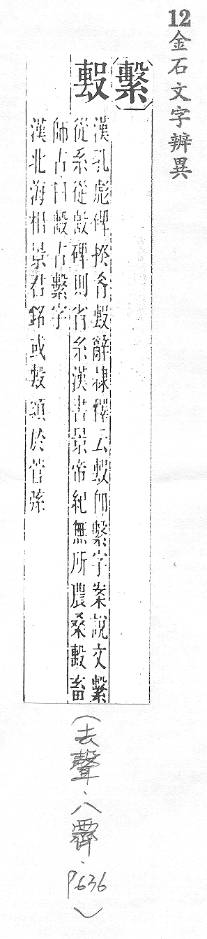 12金石文字辨異
繫
毄
漢孔彪碑揆爻毄辭隸釋云毄卽繫字案說文繫
從糸從毄碑則省糸漢書景帝紀無所農桑毄畜
師古曰毄古繫字
漢北海相景君銘或毄頌於管弦
(去聲.八霽.P.636)